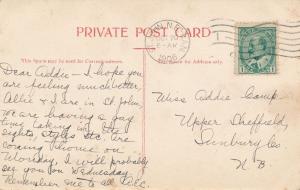 PRIVATE POST CARD
This Space may be used for Correspondence.
Dear Addie - I hope you
are feeling much better,
Allie & I are in St. John,
We are having a gay
time taking in the
sights, styles etc. are
coming home on
Monday, I will probably
see you on Wednesday
Remember me to all
1906
Miss Addie Camp.
Upper Sheffield,
Sunbury Co
N B